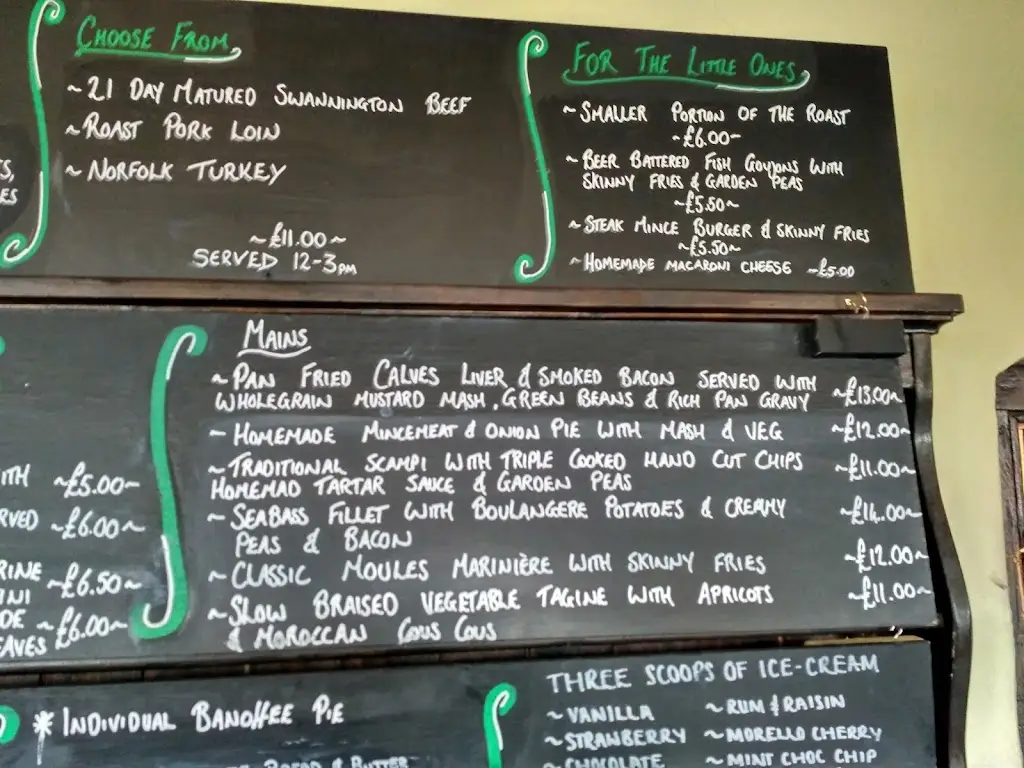 CHOOSE FROM
~21 DAY MATURED SWANNINGTON BEEF
~ROAST PORK LOIN
~NORFOLK TURKEY
~£11.00~
SERVED 12-3PM
FOR THE LITTLE ONES
~SMALLER PORTION OF THE ROAST
~£6.00~
~BEER BATTERED FISH GOUJONS WITH
SKINNY FRIES & GARDEN PEAS
~£5.50~
~STEAK MINCE BURGER & SKINNY FRIES
~£5.50~
~HOMEMADE MACARONI CHEESE ~£5.00
~£5.00~
~£6.00~
~£6.50~
~£6.00~
MAINS
~PAN FRIED CALVES LIVER & SMOKED BACON SERVED WITH
WHOLEGRAIN MUSTARD MASH, GREEN BEANS & RICH PAN GRAVY ~£13.00~
~HOMEMADE MINCEMEAT & ONION PIE WITH MASH & VEG ~£12.00~
~TRADITIONAL SCAMPI WITH TRIPLE COOKED HAND CUT CHIPS ~£11.00~
HOMEMAD TARTAR SAUCE & GARDEN PEAS
~SEABASS FILLET WITH BOULANGERE POTATOES & CREAMY ~£14.00~
PEAS & BACON
~CLASSIC MOULES MARINIÈRE WITH SKINNY FRIES ~£12.00~
~SLOW BRAISED VEGETABLE TAGINE WITH APRICOTS ~£11.00~
& MOROCCAN COUS COUS
* INDIVIDUAL BANOFFEE PIE
BREAD & BUTTER
THREE SCOOPS OF ICE-CREAM
~VANILLA ~RUM & RAISIN
~STRAWBERRY ~MORELLO CHERRY
~CHOCOLATE ~MINT CHOC CHIP